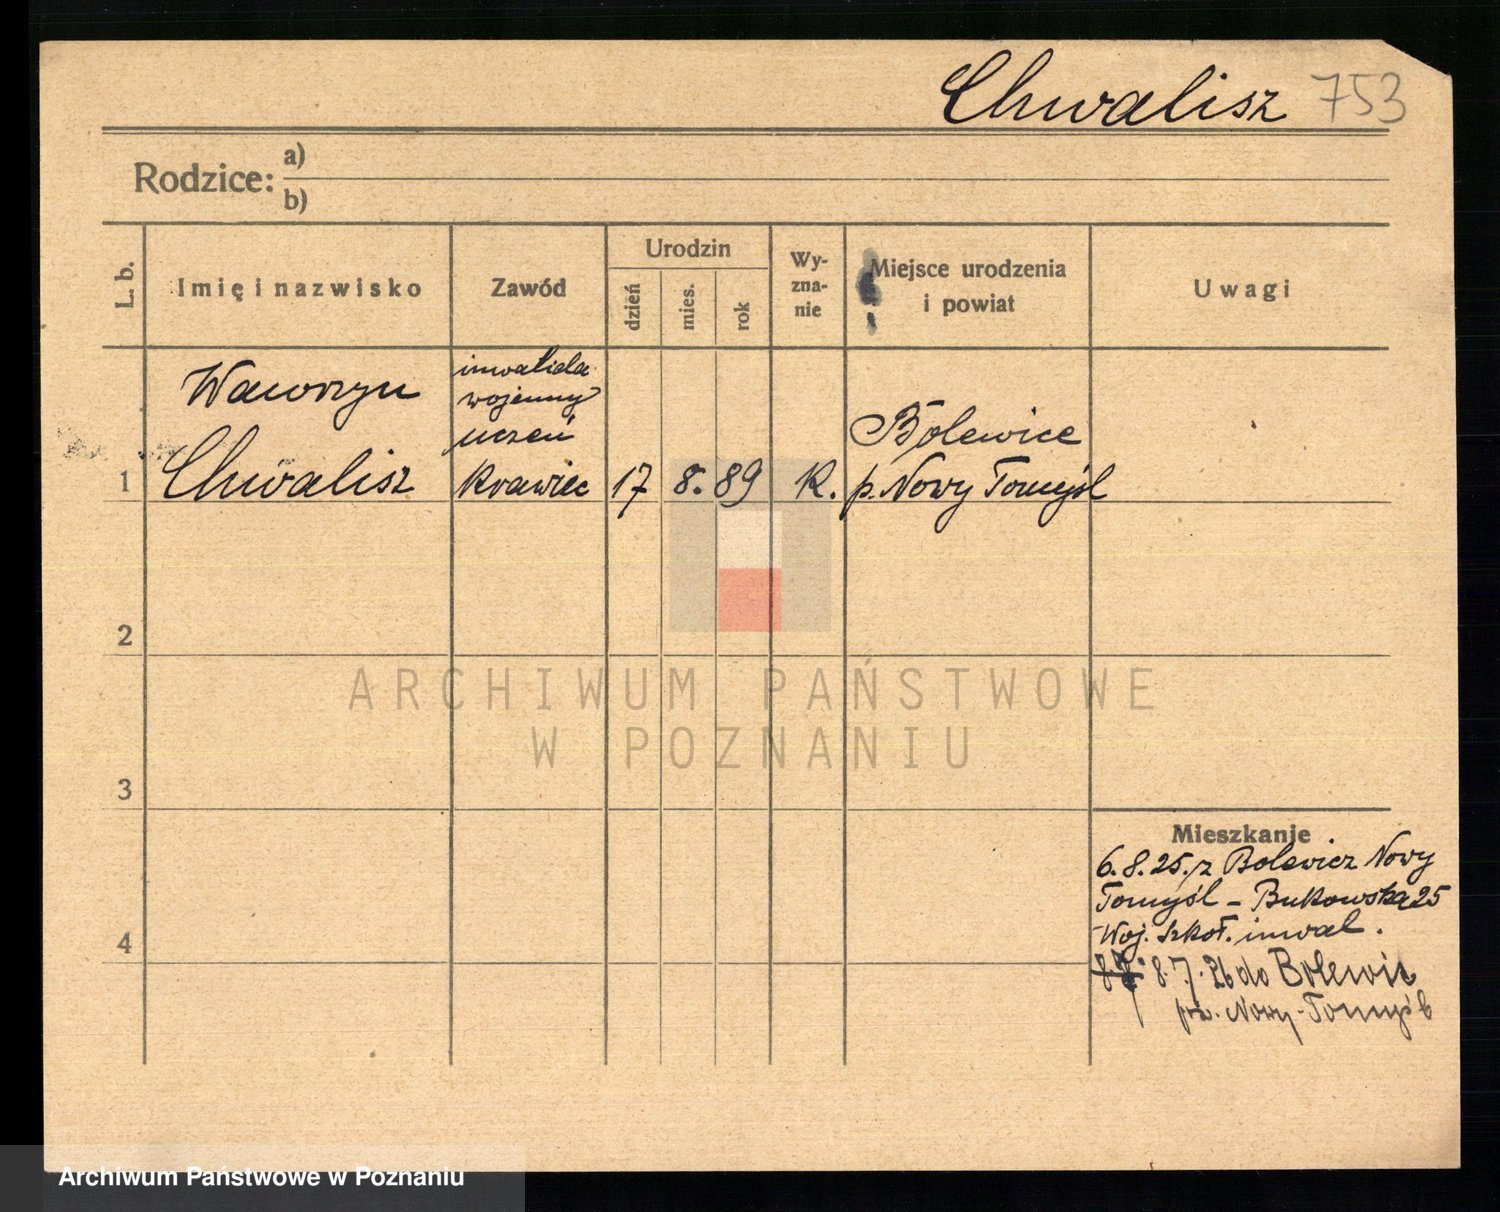 Chwalisz 753
Rodzice: a)
b)
L. b.
Imię i nazwisko
Zawód
Urodzin
dzień
mies.
rok
Wy-
zna-
nie
Miejsce urodzenia
i powiat
Uwagi
Wawrzyn
Chwalisz
inwalida
wojenny
uczeń
krawiec
1
17 8. 89
K.
Bolewice
p. Nowy Tomyśl
2
3
4
Mieszkanie
6.8.25. z Bolewicz Nowy
Tomyśl - Bukowska 25
Woj. szkoł. inwal.
8.7.26 do Bolewic
pow. Nowy-Tomyśl
ARCHIWUM PAŃSTWOWE
W POZNANIU
Archiwum Państwowe w Poznaniu